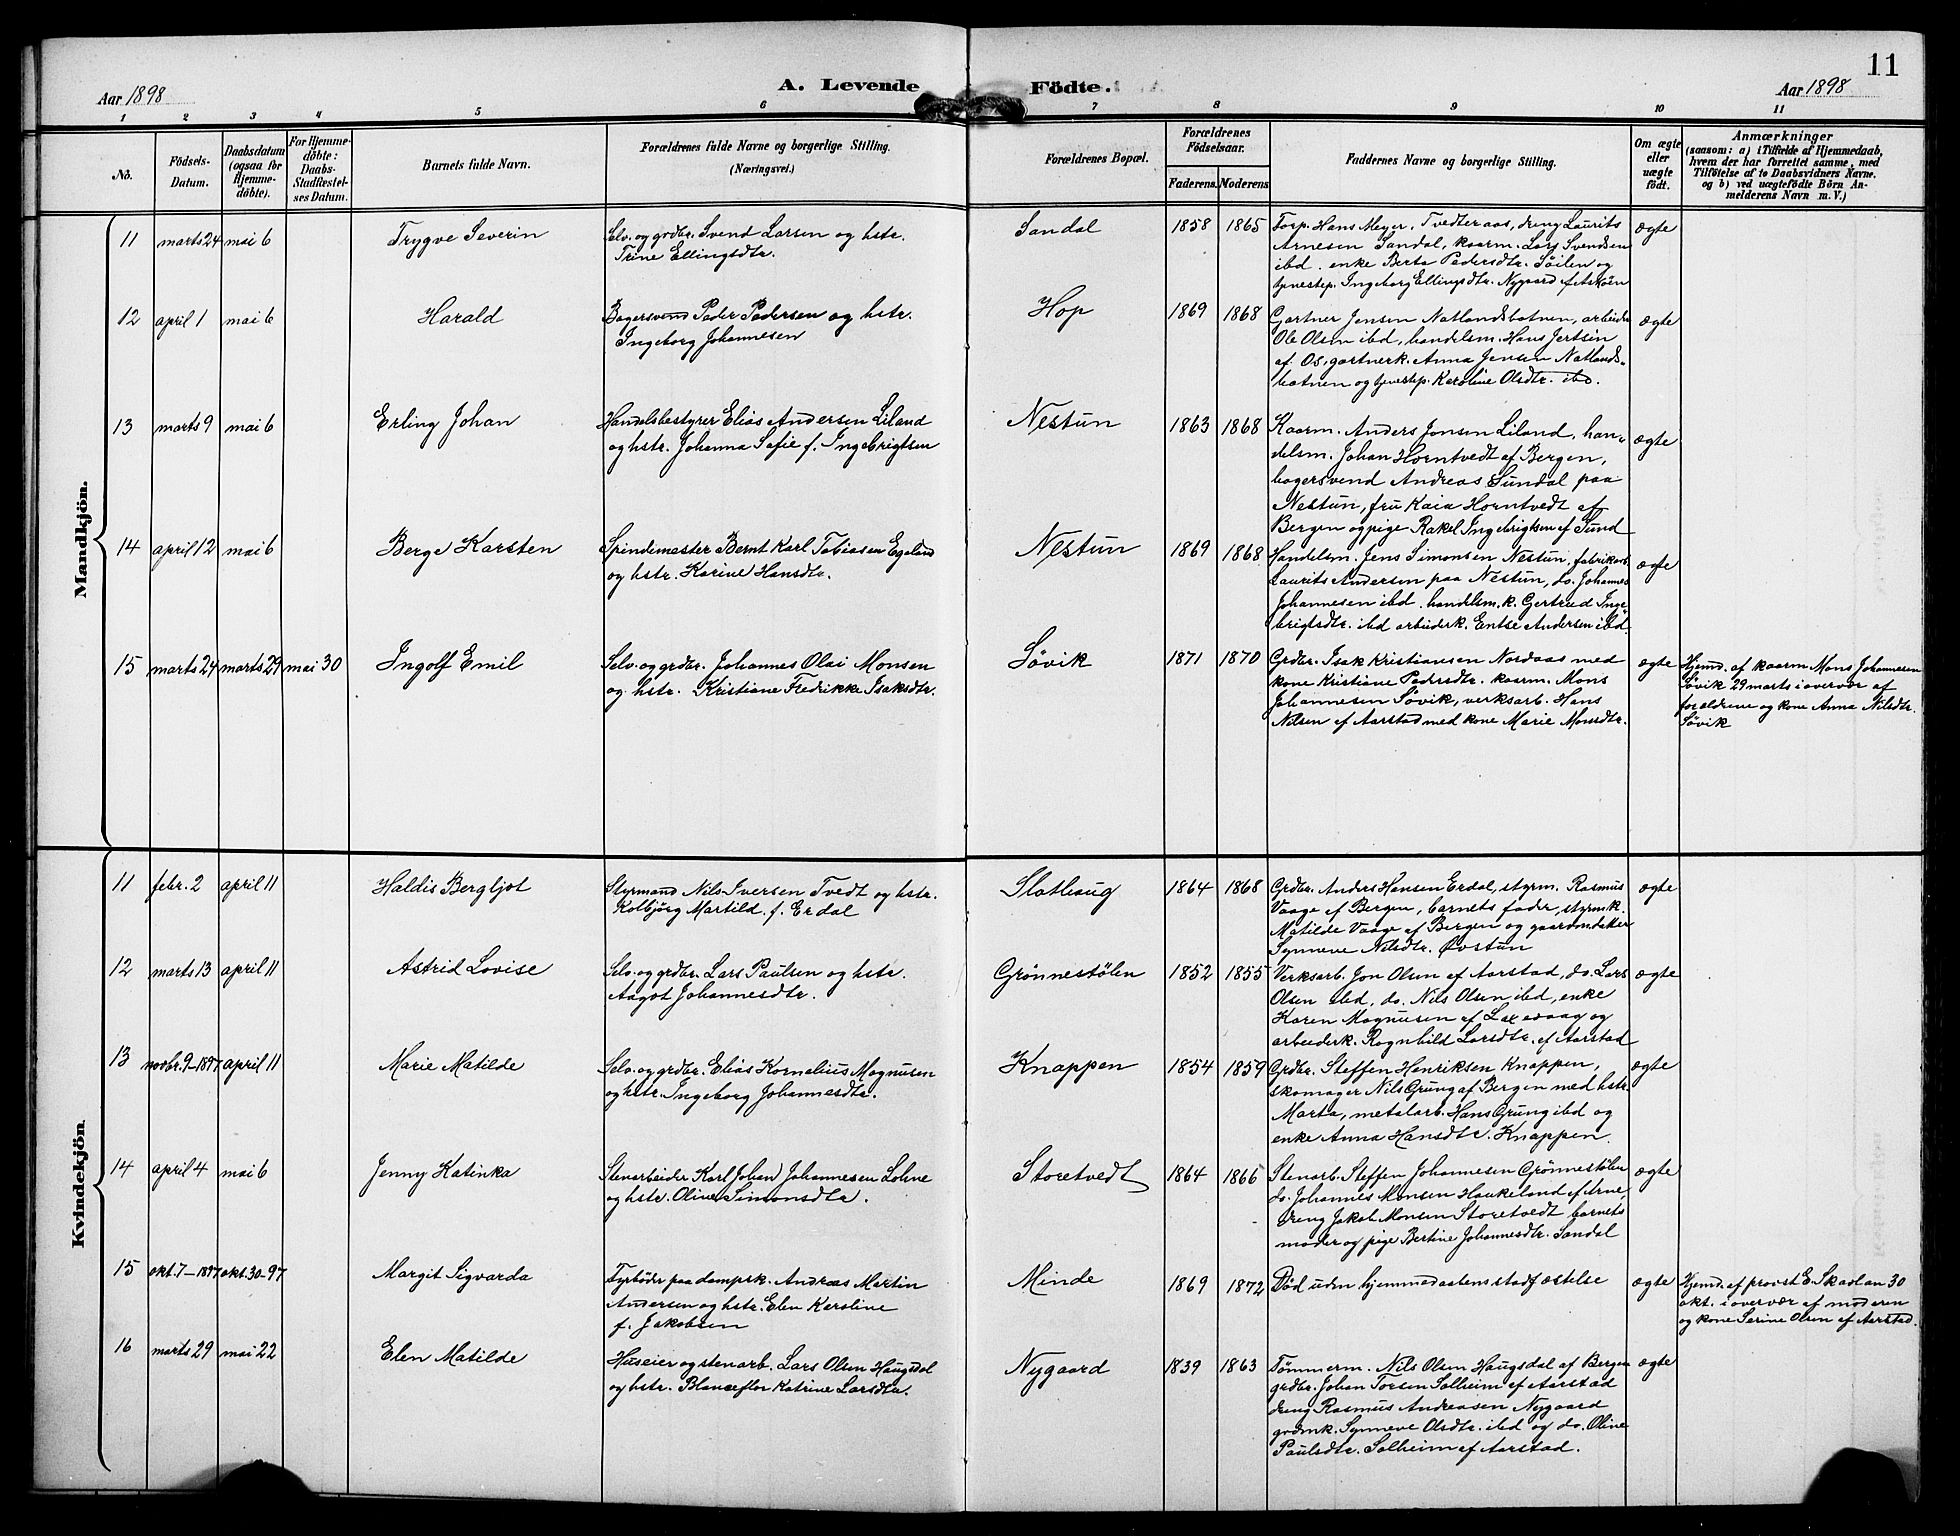 11
Aar 1898
A. Levende
Födte.
Aar 1898
1 2 3 4 5 6 7 8 9 10 11
No.
Födsels-
Datum.
Daabsdatum
(ogsaa for
Hjemme-
döbte).
For Hjemme-
döbte:
Daabs-
Stadfæstel-
ses Datum.
Barnets fulde Navn.
Forældrenes fulde Navne og borgerlige Stilling.
(Næringsvei.)
Forældrenes Bopæl.
Forældrenes
Födselsaar.
Faderens. Moderens.
Faddernes Navne og borgerlige Stilling.
Om ægte
eller
uægte
födt.
Anmærkninger
(saasom: a) i Tilfælde af Hjemmedaab,
hvem der har forrettet samme, med
Tilföielse af to Daabsvidners Navne.
og b) ved uægtefödte Börn An-
melderens Navn m. V.)
Mandkjön.
11 marts 24 mai 6 Trygve Severin
Selv. og grdbr. Svend Larsen og hstr.
Trine Ellingsdtr.
Sandal 1858 1865
Forp. Hans Meyer, Tvedteraas, dreng Laurits
Arnesen Sandal, kaarm. Lars Svendsen
ibd. enke Berta Pedersdtr. Søilen og
tjenestep. Ingeborg Ellingsdtr. Nygaard af Askøen
ægte
12 april 1 mai 6 Harald
Bagersvend Peder Pedersen og hstr.
Ingeborg Johannesen
Hop 1869 1868
Gartner Jensen Natlandsbotnen, arbeider
Ole Olsen ibd, handelsm. Hans Jertsin
af Os, gartnerk. Anna Jensen Natlands-
botnen og tjenestep. Karoline Olsdtr. ibd.
ægte
13 marts 9 mai 6 Erling Johan
Handelsbestyrer Elias Andersen Liland
og hstr. Johanna Sofie f. Ingebrigtsen
Nestun 1863 1868
Kaarm. Anders Jonsen Liland, han-
delsm. Johan Horntvedt af Bergen,
bagersvend Andreas Sundal paa
Nestun, fru Kaia Horntvedt af
Bergen og pige Rakel Ingebrigtsen af Sund
ægte
14 april 12 mai 6 Berge Karsten
Spindemester Bernt Karl Tobiasen Egeland
og hstr. Karine Hansdtr.
Nestun 1869 1868
Handelsm. Jens Simonsen Nestun, fabrikarb.
Laurits Andersen paa Nestun, do. Johannes
Johannesen ibd. handelsm. k. Gertrud Inge-
brigtsdtr. ibd arbeiderk. Entse Andersen ibd.
ægte
15 marts 24 marts 29 mai 30 Ingolf Emil
Selv. og grdbr. Johannes Olai Monsen
og hstr. Kristiane Fredrikke Isaksdtr.
Søvik 1871 1870
Grdbr. Isak Kristiansen Nordaas med
kone Kristiane Pedersdtr. kaarm. Mons
Johannesen Søvik, verksarb. Hans
Nilsen af Aarstad med kone Marie Monsdtr.
ægte
Hjemd. af kaarm Mons Johannesen
Søvik 29 marts i overvær af
forældrene og kone Anna Nilsdtr.
Søvik
Kvindekjön.
11 febr. 2 april 11 Haldis Bergljot
Styrmand Nils Iversen Tvedt og hstr.
Kolbjørg Martild. f. Erdal
Slathaug 1864 1868
Grdbr. Anders Hansen Erdal, styrm. Rasmus
Vaage af Bergen, barnets fader, styrm k.
Matilde Vaage af Bergen og gaardmdatter
Synneve Nilsdtr. Øvstun
ægte
12 marts 13 april 11 Astrid Lovise
Selv. og grdbr. Lars Paulsen og hstr.
Aagot Johannesdtr.
Grønnestølen 1852 1855
Verksarb. Jon Olsen af Aarstad, do. Lars
Olsen ibd, do. Nils Olsen ibd, enke
Karen Magnusen af Laxevaag og
arbeiderk. Ragnhild Larsdtr. af Aarstad
ægte
13 novbr. 9-1897 april 11 Marie Matilde
Selv. og grdbr. Elias Kornelius Magnusen
og hstr. Ingeborg Johannesdtr.
Knappen 1854 1859
Grdbr. Steffen Henriksen Knappen,
skomager Nils Grung af Bergen med hstr.
Marta, metalarb. Hans Grung ibd og
enke Anna Hansdtr. Knappen.
ægte
14 april 4 mai 6 Jenny Katinka
Stenarbeider Karl Johan Johannesen Lohne
og hstr. Oline Simonsdtr.
Storetvedt 1864 1866
Stenarb. Steffen Johannesen Grønnestølen
do. Johannes Monsen Haukeland af Arne,
dreng Jakob Monsen Storetvedt barnets
moder og pige Bertine Johannesdtr. Sandal
ægte
15 okt. 7-1897 okt. 30-97 Margit Sigvarda
Fyrbøder paa dampsk. Andreas Martin
Andersen og hstr. Elen Karoline
f. Jakobsen
Minde 1869 1872
Død uden hjemmedaabens stadfæstelse
ægte
Hjemd. af provst E. Skavlan 30
okt. i overvær af moderen
og kone Serine Olsen af Aarstad.
16 marts 29 mai 22 Elen Matilde
Huseier og stenarb. Lars Olsen Haugsdal
og hstr. Blanceflor Katrine Larsdtr.
Nygaard 1839 1863
Tømmerm. Nils Olsen Haugsdal af Bergen
grdbr. Johan Torsen Solheim af Aarstad
dreng Rasmus Andreasen Nygaard
grdmk. Synneve Olsdtr. ibd og do. Oline
Paulsdtr. Solheim af Aarstad.
ægte